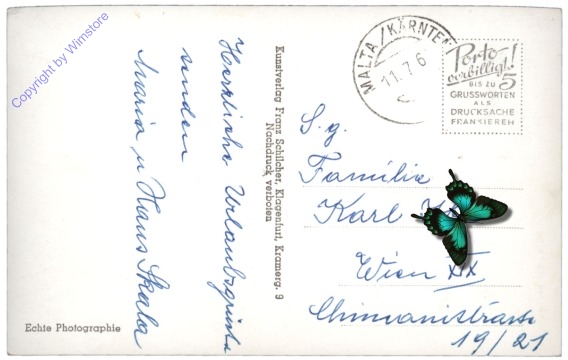 Copyright by Wimstore
Herzliche Urlaubsgrüsse
senden
Maria u Hans Skala
Kunstverlag Franz Schilcher, Klagenfurt, Kramerg. 9
Nachdruck verboten
Echte Photographie
MALTA / KÄRNTEN
11.7.6
Porto-
verbilligt!
BIS ZU 5
GRUSSWORTEN
ALS
DRUCKSACHE
FRANKIEREN
S.g.
Familie
Karl
Wien XIX
Chimanistrasse
19/21